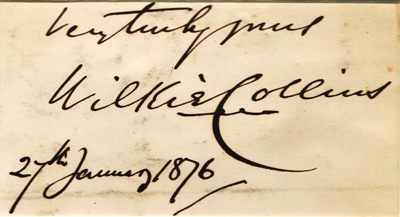 Very truly yours
Wilkie Collins
27th January 1876